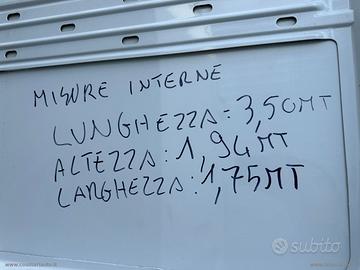 MISURE INTERNE
LUNGHEZZA: 3,50MT
ALTEZZA: 1,94MT
LARGHEZZA: 1,75MT
subito